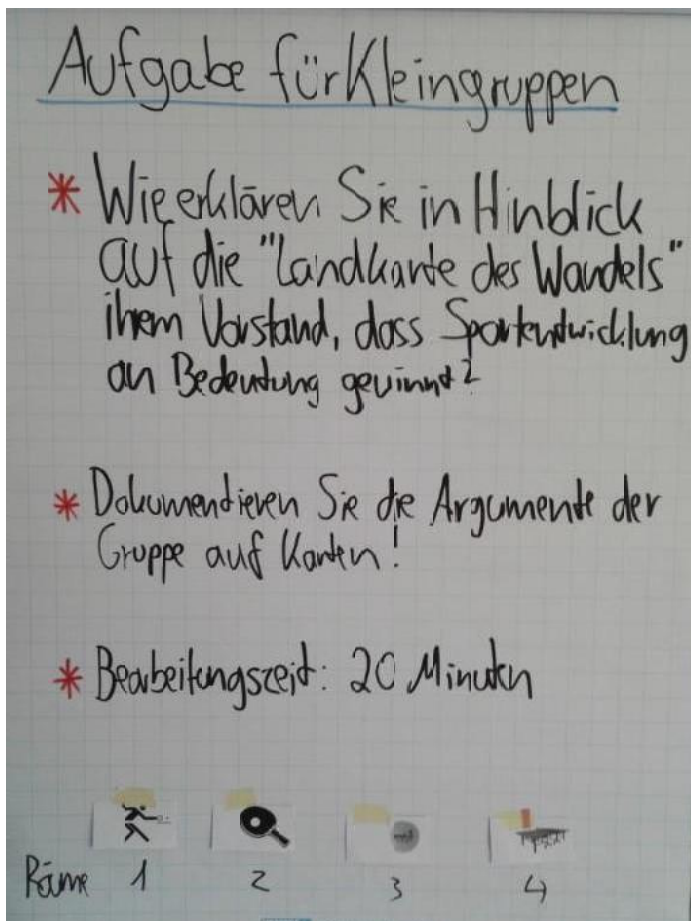 Aufgabe für Kleingruppen
* Wie erklären Sie in Hinblick
auf die "Landkarte des Wandels"
ihrem Vorstand, dass Sportentwicklung
an Bedeutung gewinnt?
* Dokumentieren Sie die Argumente der
Gruppe auf Karten!
* Bearbeitungszeit: 20 Minuten
Räume 1 2 3 4